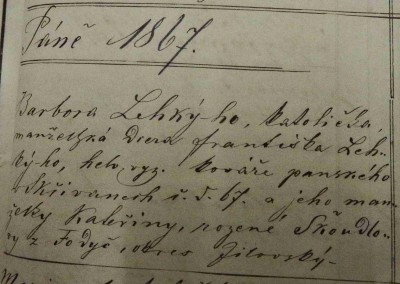 Páně 1867.
Barbora Lehký-ho, katolička,
manželská dcera františka Leh-
ký-ho, helv. vyz. kováře panského
v Skřivanech č. d. 67. a jeho man-
želky Kateřiny, rozené Škoudlo-
vy z Fodyě, okres Jičovský.